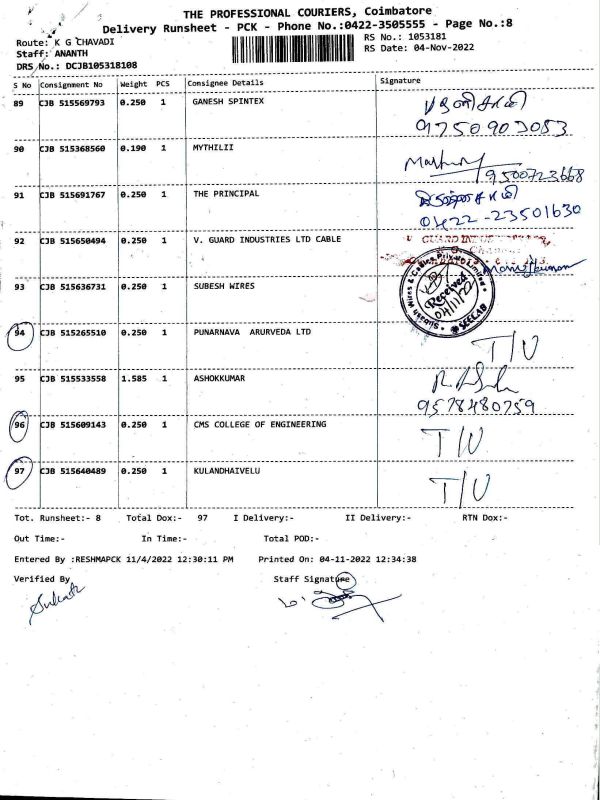 THE PROFESSIONAL COURIERS, Coimbatore
Delivery Runsheet - PCK - Phone No.:0422-3505555 - Page No.:8
Route: K G CHAVADI
RS No.: 1053181
Staff: ANANTH
RS Date: 04-Nov-2022
DRS No.: DCJB105318108
S No Consignment No Weight PCS Consignee Details Signature
89 CJB 515569793 0.250 1 GANESH SPINTEX
9750903083
90 CJB 515368560 0.190 1 MYTHILII
9500723668
91 CJB 515691767 0.250 1 THE PRINCIPAL
0422-23501630
92 CJB 515650494 0.250 1 V. GUARD INDUSTRIES LTD CABLE
93 CJB 515636731 0.250 1 SUBESH WIRES
Received
04/11/22
94 CJB 515265510 0.250 1 PUNARNAVA ARURVEDA LTD
T/U
95 CJB 515533558 1.585 1 ASHOKKUMAR
9578480759
96 CJB 515609143 0.250 1 CMS COLLEGE OF ENGINEERING T/U
97 CJB 515640489 0.250 1 KULANDHAIVELU
T/U
Tot. Runsheet:- 8 Total Dox:- 97 I Delivery:- II Delivery:- RTN Dox:-
Out Time:- In Time:- Total POD:-
Entered By :RESHMAPCK 11/4/2022 12:30:11 PM Printed On: 04-11-2022 12:34:38
Verified By Staff Signature